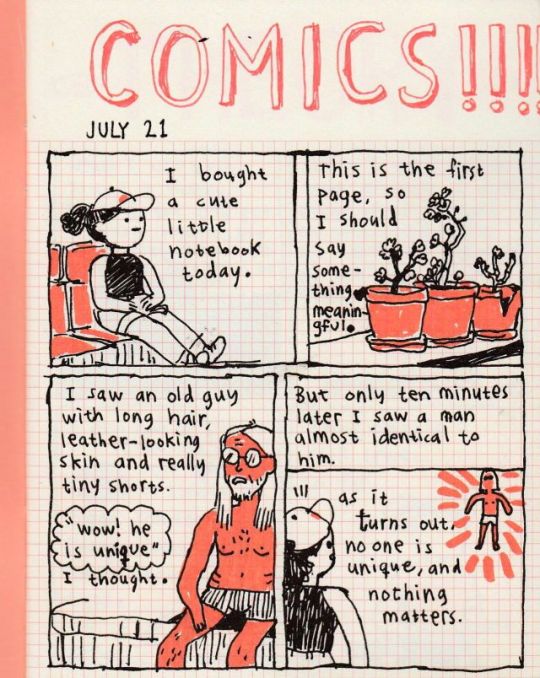 COMICS!!!!
JULY 21
I bought
a cute
little
notebook
today.
This is the first
page, so
I should
say
some-
thing
meanin-
gful.
I saw an old guy
with long hair,
leather-looking
skin and really
tiny shorts.
"wow! he
is unique"
I thought.
But only ten minutes
later I saw a man
almost identical to
him.
!!!
as it
turns out,
no one is
unique, and
nothing
matters.